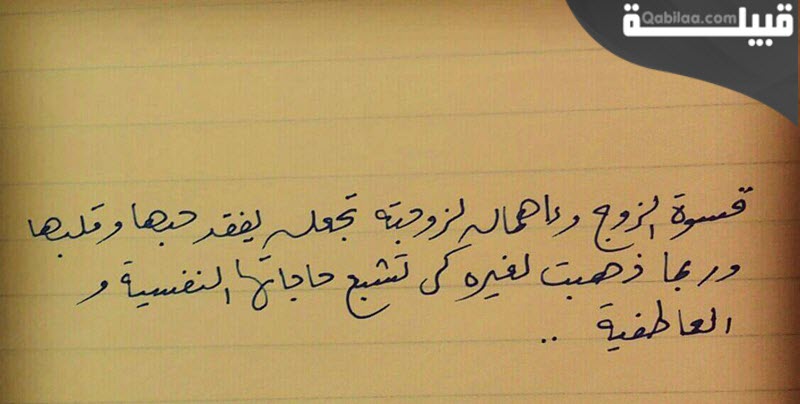 قبيلة
Qabilaa.com
قسوة الزوج وإهماله لزوجته تجعله يفقد حبها وقلبها
وربما ذهبت لغيره كي تشبع حاجاتها النفسية و
العاطفية ..